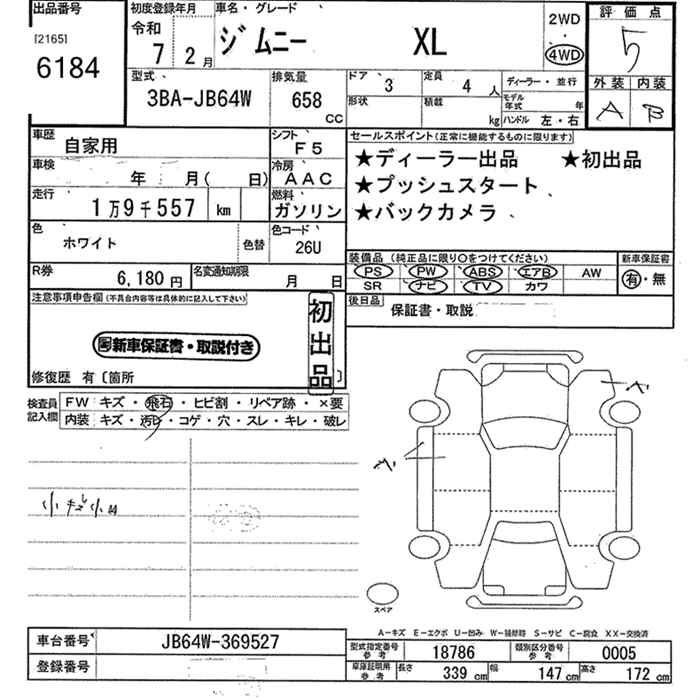 出品番号 [2165] 6184
初度登録年月 令和 7年 2月
車名・グレード ジムニー XL
2WD・4WD
評価点 5
外装 A 内装 B
型式 3BA-JB64W
排気量 658 CC
ドア 3
形状
定員 4人
積載 kg
ディーラー・並行
モデル年式 年
ハンドル 左・右
車歴 自家用
シフト F5
車検 年 月( 日)
冷房 AAC
走行 1万9千557 km
燃料 ガソリン
色 ホワイト 色替
色コード 26U
R券 6,180円
名変通知期限 月 日
セールスポイント(正常に機能するものに限ります)
★ディーラー出品 ★初出品
★プッシュスタート
★バックカメラ
装備品 (純正品に限り○をつけてください)
PS PW ABS エアB AW
SR ナビ TV カワ
新車保証書 有・無
後日品 保証書・取説
注意事項申告欄 (不具合内容等は具体的に記入して下さい)
新車保証書・取説付き
初出品
修復歴 有〔箇所 〕
検査員記入欄
FW キズ・飛石・ヒビ割・リペア跡・×要
内装 キズ・汚レ・コゲ・穴・スレ・キレ・破レ
スペア
A-キズ E-エクボ U-凹み W-補修跡 S-サビ C-腐食 XX-交換済
車台番号 JB64W-369527
登録番号
型式指定番号 参考 18786
類別区分番号 参考 0005
車庫証明用 参考 長さ 339 cm 幅 147 cm 高さ 172 cm